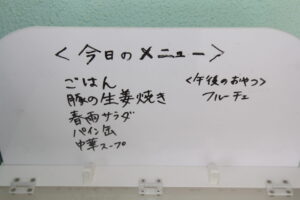 <今日のメニュー>
ごはん
豚の生姜焼き
春雨サラダ
パイン缶
中華スープ
<午後のおやつ>
フルーチェ